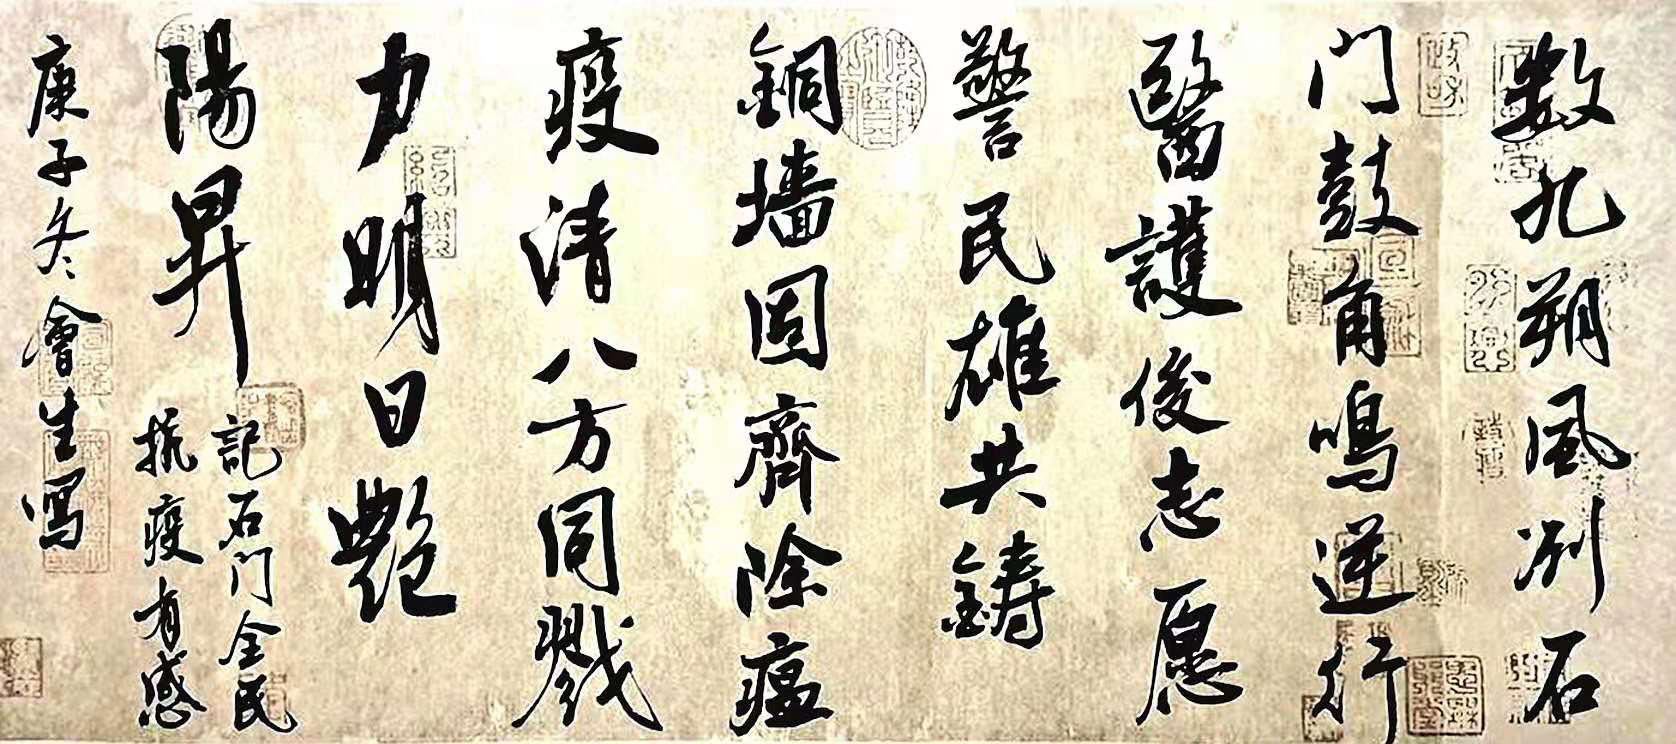 数九朔风冽石
门鼓角鳴逆行
醫護俊志愿
警民雄共鋳
銅墙固齊除瘟
疫清八方同戮
力明日艶
陽昇
記石门全民
抗疫有感
庚子冬會生写